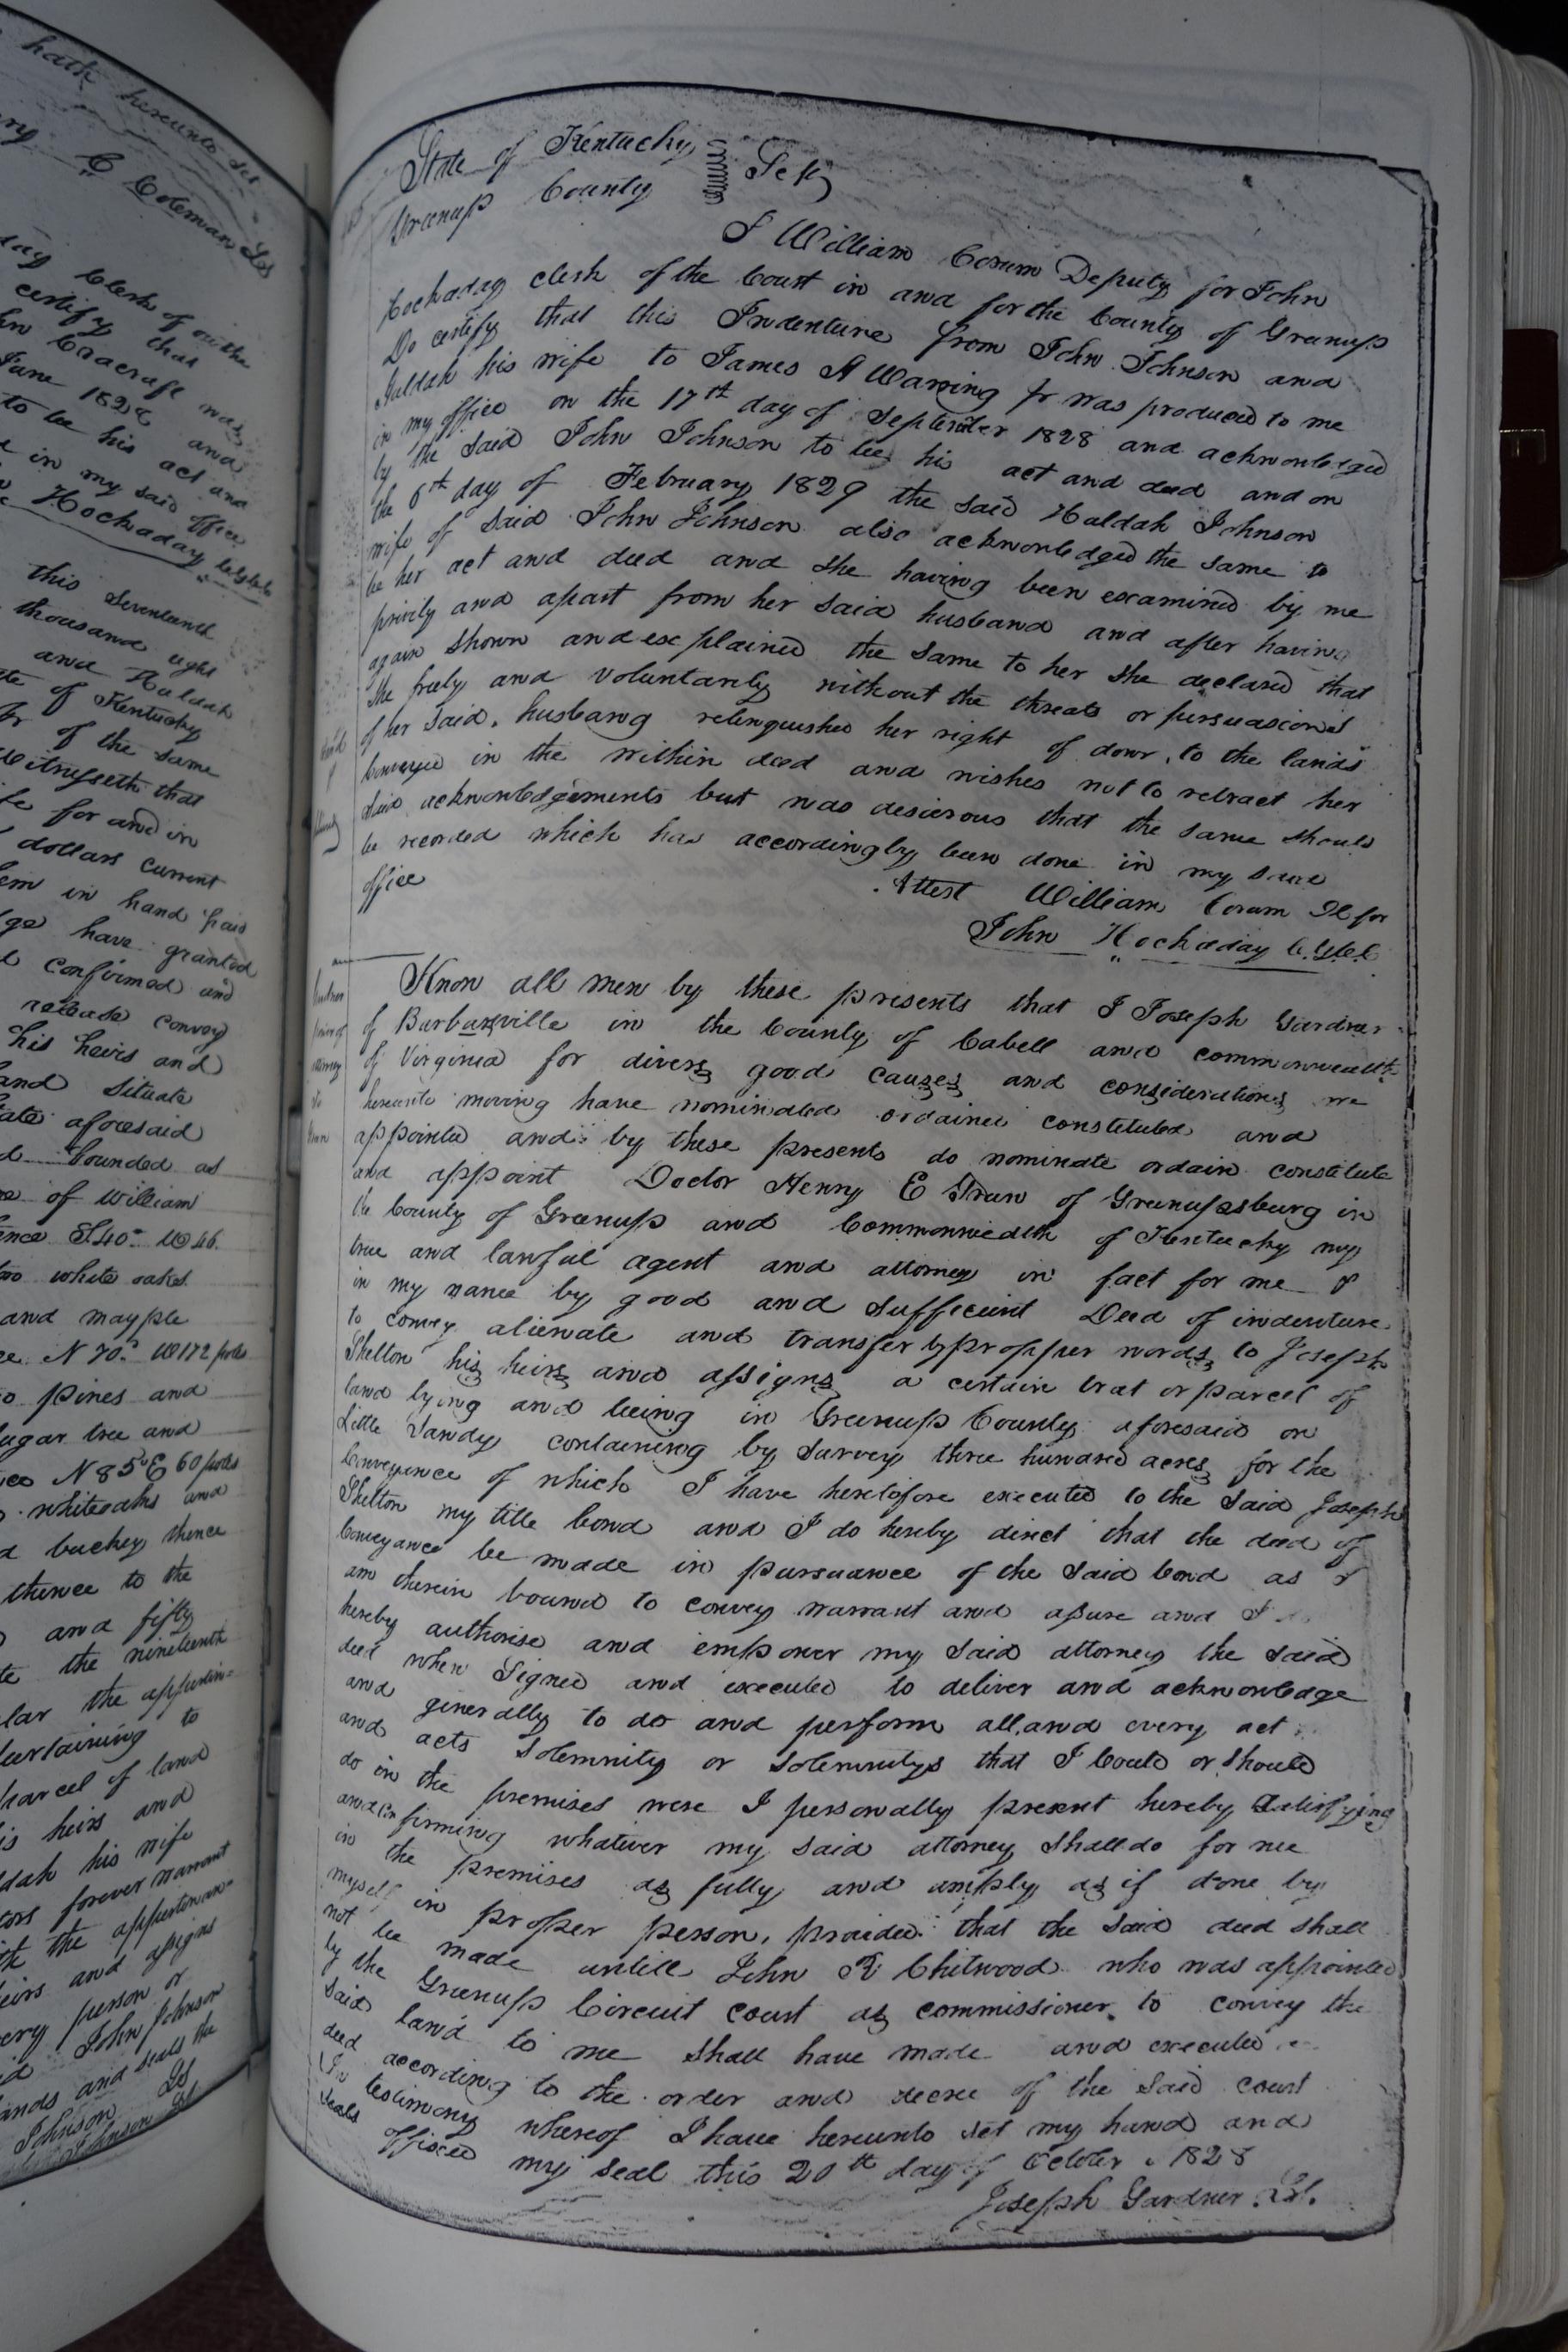 hath hereunto set
C Coleman Ls
day Clerk of
certify that
Cracraft was
June 1828 and
to be his act and
in my said office
Hockaday
this Seventeenth
thousand eight
and Huldah
of Kentucky
Jr of the same
Witnesseth that
for and in
dollars current
in hand paid
have granted
confirmed and
release convey
his heirs and
land Situate
aforesaid
bounded as
of William
S 40° W 46
white oaks
and mayple
N 70° W 172 poles
pines and
sugar tree and
N 85° E 60 poles
whiteoaks and
buckey thence
thence to the
and fifty
the nineteenth
the appurten=
to
parcel of land
heirs and
his wife
forever warrant
the appurtenan=
heirs and assigns
person or
John Johnson
hands and seals the
Johnson Ls
Johnson Ls
State of Kentucky
Greenup County Sct
I William Corum Deputy for John
Hockaday clerk of the Court in and for the County of Greenup
Do certify that this Indenture from John Johnson and
Huldah his wife to James A Waring Jr was produced to me
in my office on the 17th day of September 1828 and acknowledged
by the said John Johnson to be his act and deed and on
the 6th day of February 1829 the said Haldah Johnson
wife of said John Johnson also acknowledged the same to
be her act and deed and she having been examined by me
privily and apart from her said husband and after having
again shown and explained the same to her she declared that
she freely and voluntarily without the threats or persuasions
of her said husband relinquished her right of dower to the lands
Conveyed in the within deed and wishes not to retract her
said acknowledgements but was desierous that the same should
be recorded which has accordingly been done in my said
office
Attest William Corum DC for
John Hockaday
Know all men by these presents that I Joseph Gardner
of Barbarville in the County of Cabell and commonwealth
of Virginia for divers good causes and considerations me
hereunto moving have nominated ordained constituted and
appointed and by these presents do nominate ordain constitute
and appoint Doctor Henry E Green of Greenupsburg in
the County of Greenup and Commonwealth of Kentucky my
true and lawful agent and attorney in fact for me &
in my name by good and sufficient Deed of indenture
to convey alienate and transfer by propper words to Joseph
Shelton his heirs and assigns a certain trat or parcel of
land lying and being in Greenup County aforesaid on
Little Sandy containing by survey three hundred acres for the
Conveyance of which I have heretofore executed to the said Joseph
Shelton my title bond and I do hereby direct that the deed of
Conveyance be made in pursuance of the said bond as I
am therein bound to convey warrant and assure and I do
hereby authorise and impower my said attorney the said
deed when Signed and executed to deliver and acknowledge
and generally to do and perform all and every act
and acts Solemnity or Solemnitys that I Could or should
do in the premises were I personally present hereby
and confirming whatever my said attorney shall do for me
in the premises as fully and amply as if done by
myself in propper person, provided that the said deed shall
not be made untill John R Chitwood who was appointed
by the Greenup Circuit court as commissioner to convey the
said land to me shall have made and executed
deed according to the order and decree of the said court
In testimony whereof I have hereunto set my hand and
Seals
affixed my seal this 20th day of October 1828
Joseph Gardner Ls.